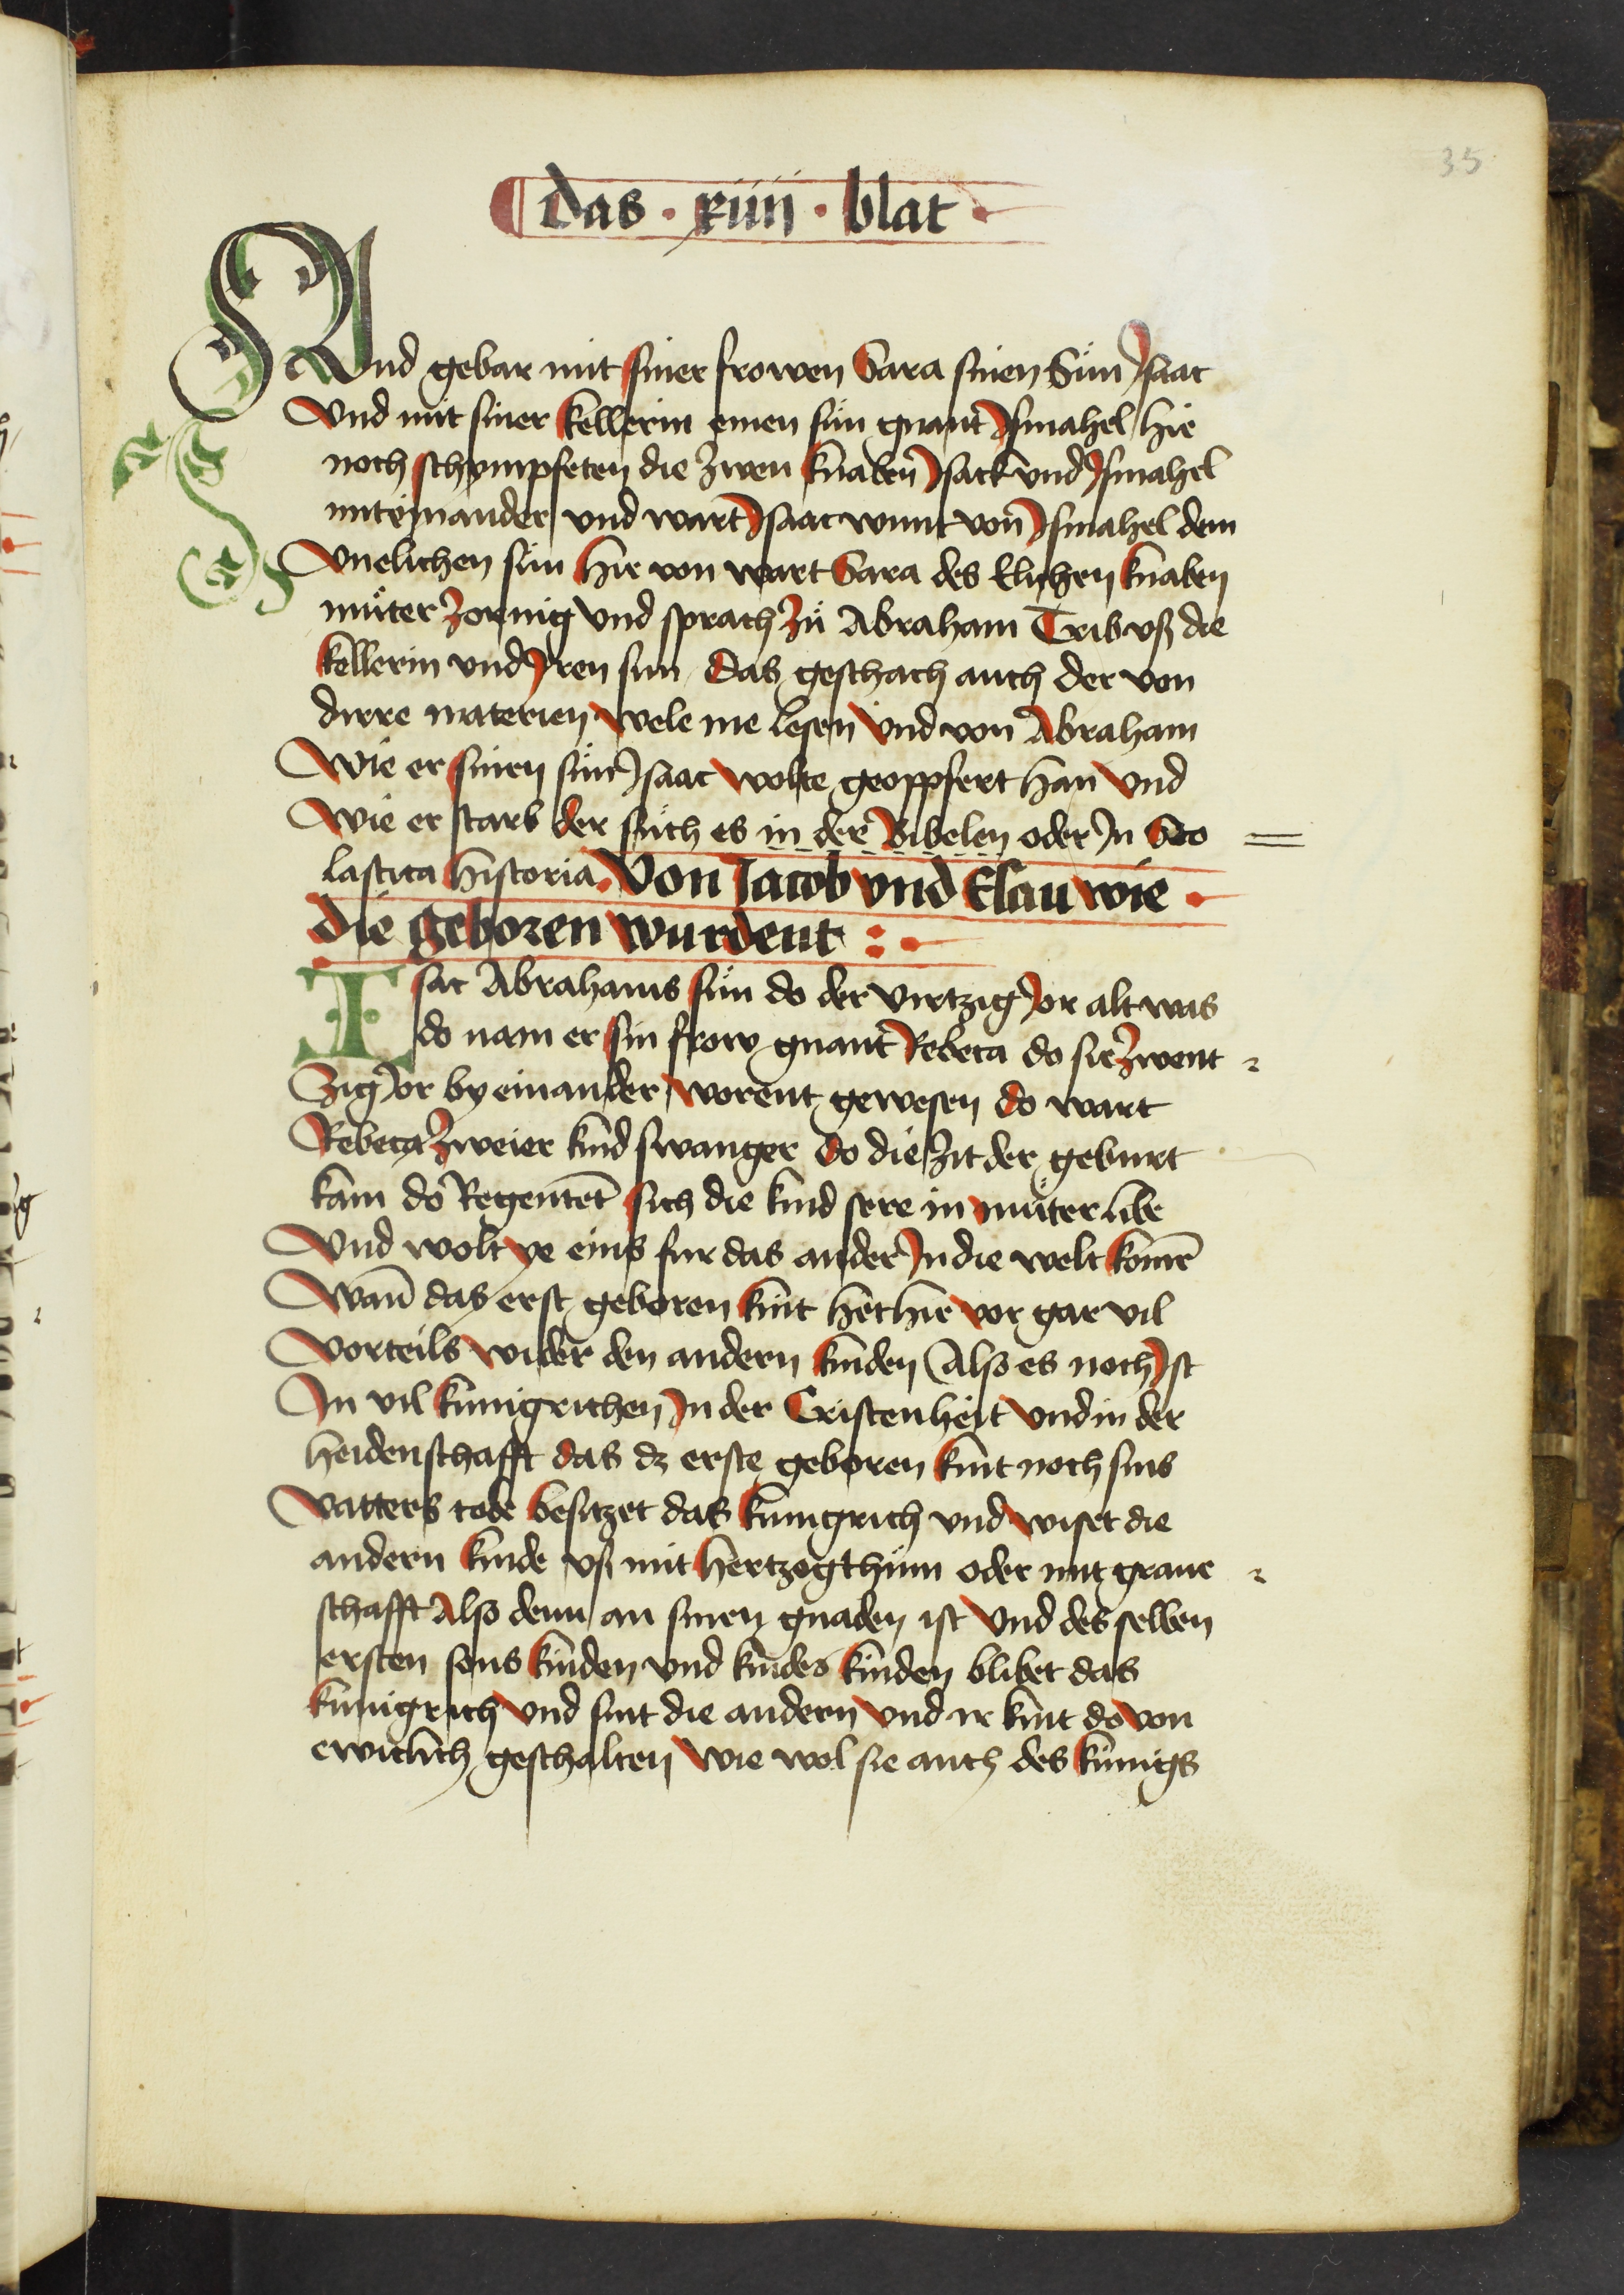 35
das · xiiij · blat ·
Und gebar mit siner frowen Sara sinen Sůn Jsaac
Vnd mit siner kellerin einen sůn gnant Jsmahel hie
noch schympfeten die zwen knaben Jsack vnd Jsmahel
miteinander vnd wart Jsaac wunt von Jsmahel dem
Vnelichen sůn hie von wart Sara des Elichen knaben
můter zornig vnd sprach zů Abraham Trib vß die
kellerin vnd Jren sun das geschach auch der von
dirre materien wele me lesen vnd von Abraham
Wie er sinen sůn Jsaac wolte geoppfert han vnd
Wie er starb der sůch es in der Bibelen oder Jn Sco
lastica historia. Von Jacob vnd Esau wie ·
die geboren wurdent :·
Isac Abrahams sůn do der virtzig Jor alt was
do nam er sin frow gnant Rebeca do sie zwent
zig Jor by einander worent gewesen do wart
Rebeca zweier kind swanger do die zit der geburt
kam do Regentet sich die kind sere in můter libe
Vnd wolt ye eins fur das ander Jn die welt komē
Wañ das erst geboren kint het hie vor gar vil
Vorteils wider den andern kinden Also es noch Jst
Jn vil kunigrichen Jn der Cristenheit vnd in der
heidenschafft das dz erste geboren kint noch sins
Vatters tode besitzet das kunigrich vnd wiset die
andern kinde vß mit hertzogthům oder mit graue
schafft Also denn an sinen gnaden ist Vnd des selben
ersten sons kinden vnd kindes kinden blibet das
kunigrich vnd sint die andern vnd ir kint do von
ewiclich geschalten Wie wol sie auch des kůnigs